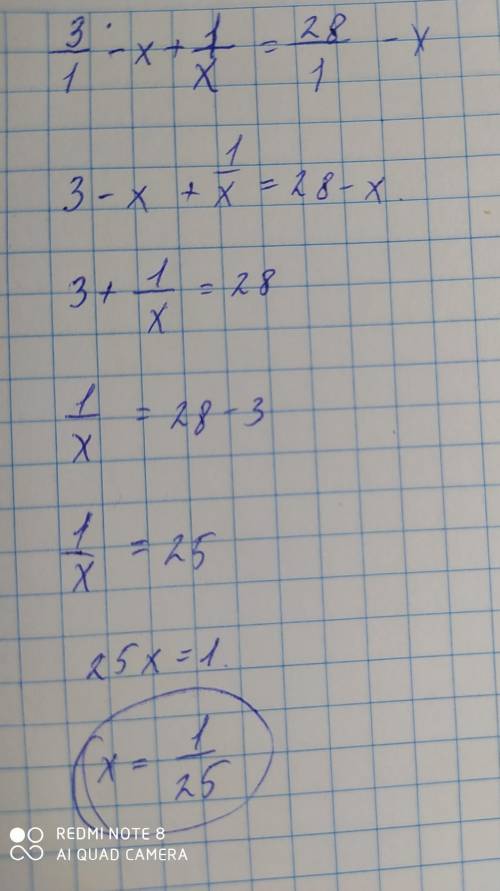 3/1 - x + 1/x = 28/1 - x
3 - x + 1/x = 28 - x.
3 + 1/x = 28
1/x = 28 - 3
1/x = 25
25x = 1.
x = 1/25
REDMI NOTE 8
AI QUAD CAMERA